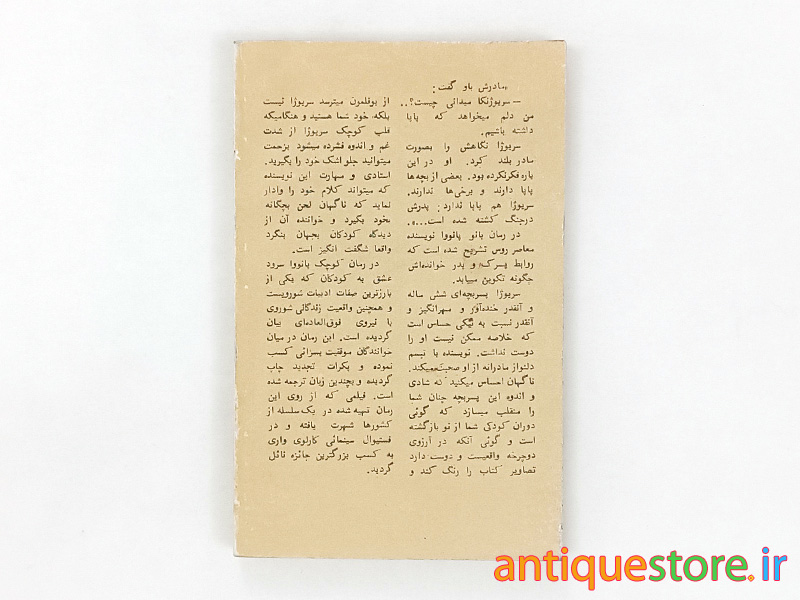 «مادرش باو گفت:
– سریوژنکا میدانی چیست؟..
من دلم میخواهد که پاپا
داشته باشیم.
سریوژا نگاهش را بصورت
مادر بلند کرد. او در این
باره فکرنکرده بود. بعضی از بچه‌ها
پاپا دارند و برخی‌ها ندارند.
سریوژا هم پاپا ندارد: پدرش
درجنگ کشته شده است...».
در رمان بانو پانووا نویسنده
معاصر روس تشریح شده است که
روابط پسرک و پدر خوانده‌اش
چگونه تکوین مییابد.
سریوژا پسربچه‌ای شش ساله
و آنقدر خنده‌آور و مهرانگیز و
آنقدر نسبت به نیکی حساس است
که خلاصه ممکن نیست او را
دوست نداشت. نویسنده با تبسم
دلنواز مادرانه از او صحبت میکند.
ناگهان احساس میکنید که شادی
و اندوه این پسربچه چنان شما
را منقلب میسازد که گوئی
دوران کودکی شما از نو بازگشته
است و گوئی آنکه در آرزوی
دوچرخه واقعیست و دوست دارد
تصاویر کتاب را رنگ کند و
از بوقلمون میترسد سریوژا نیست
بلکه خود شما هستید و هنگامیکه
قلب کوچک سریوژا از شدت
غم و اندوه فشرده میشود بزحمت
میتوانید جلو اشک خود را بگیرید.
استادی و مهارت این نویسنده
که میتواند کلام خود را وادار
نماید که ناگهان لحن بچگانه
بخود بگیرد و خواننده آن از
دیدگاه کودکان بجهان بنگرد
واقعا شگفت انگیز است.
در رمان کوچک پانووا سرود
عشق به کودکان که یکی از
بارزترین صفات ادبیات شورویست
و همچنین واقعیت زندگانی شوروی
با نیروی فوق‌العاده‌ای بیان
گردیده است. این رمان در میان
خوانندگان موفقیت بسزائی کسب
نموده و بکرات تجدید چاپ
گردیده و بچندین زبان ترجمه شده
است. فیلمی که از روی این
رمان تهیه شده در یک سلسله از
کشورها شهرت یافته و در
فستیوال سینمائی کارلووی واری
به کسب بزرگترین جائزه نائل
گردید.
antiquestore.ir